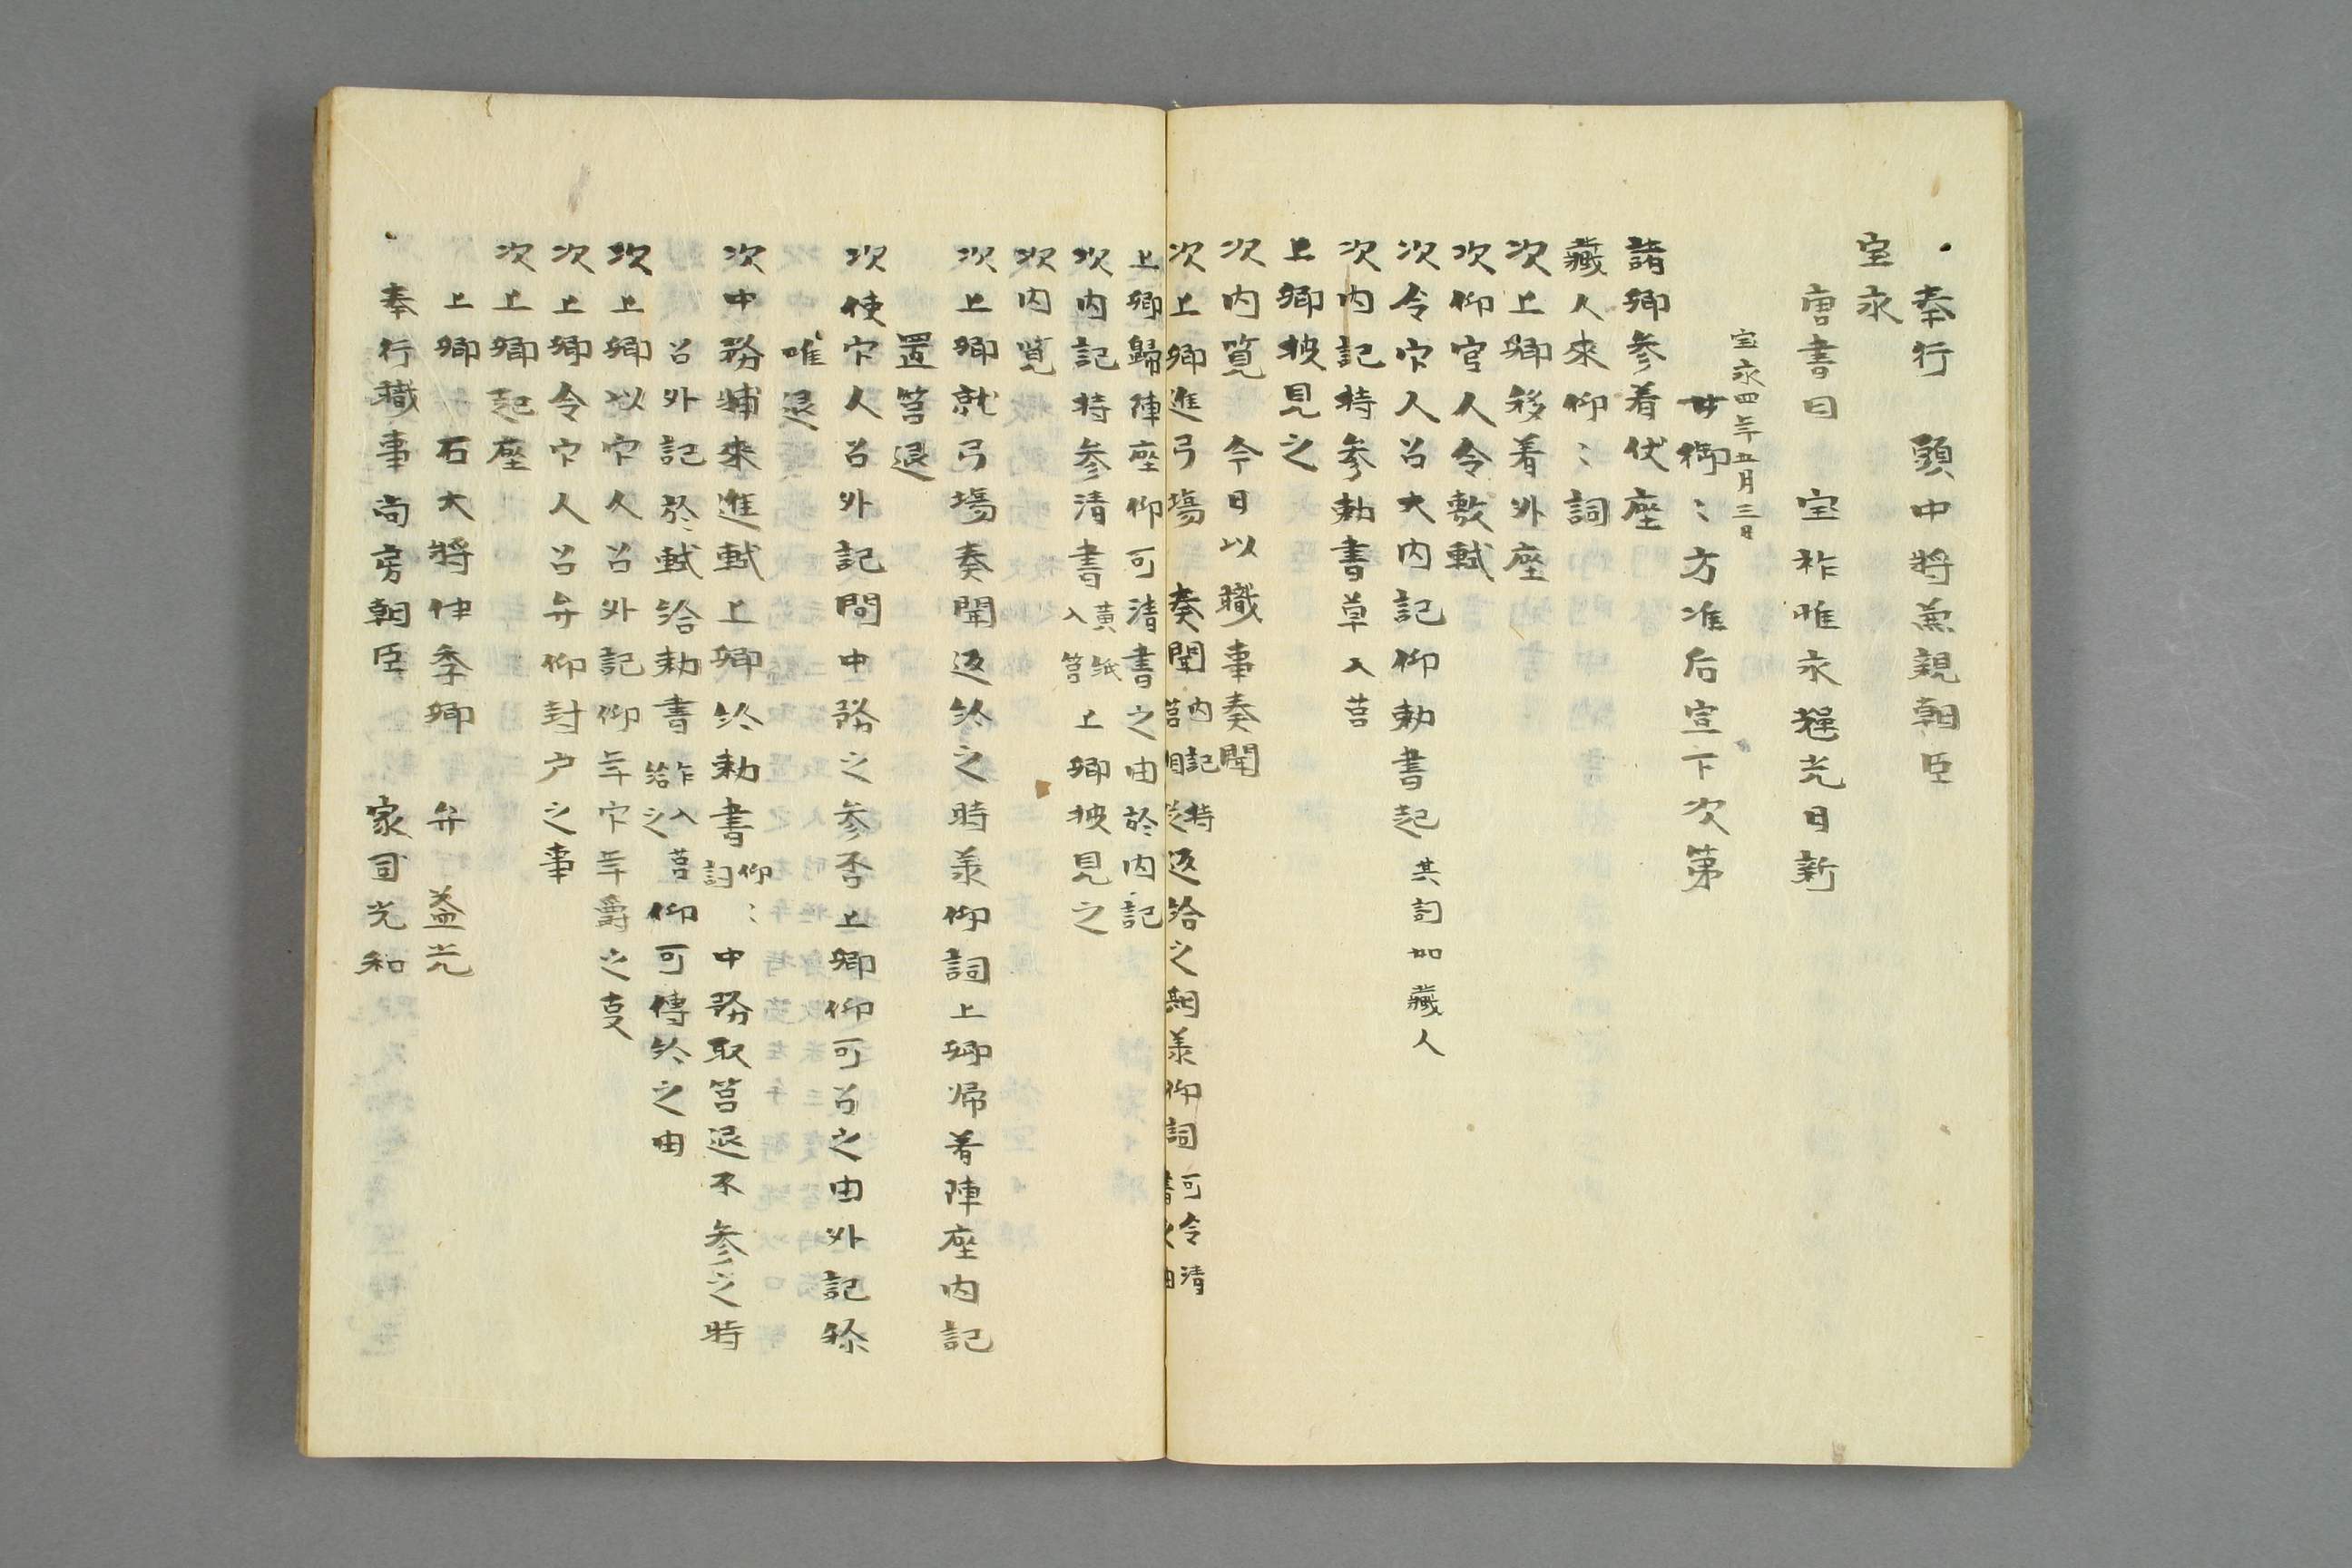 奉行　頭中将兼親朝臣
宝永
唐書曰　宝祚惟永暉光日新
宝永四年五月三日
女御〻方准后宣下次第
諸卿参着伏座
蔵人来仰〻詞
次上卿移着外座
次仰官人令敷軾
次令官人召大内記仰勅書起　其詞如蔵人
次内記持参勅書草入筥
上卿披見之
次内覧　今日以職事奏聞
次上卿進弓場　奏聞　内記持筥相従　返給之期美仰詞　可令清書之由
上卿帰陣座仰可清書之由於内記
次内記持参清書　黄紙入筥　上卿披見之
次内覧
次上卿就弓場奏聞返給之時美仰詞上卿帰着陣座内記
置筥退
次使官人召外記問中務之参否上卿仰可召之由外記称
唯退
次中務輔来進軾上卿給勅書　仰〻詞　中務取筥退不参之時
召外記於軾給勅書　乍入筥給之　仰可伝給之由
次上卿以官人召外記仰年官年爵之事
次上卿令官人召弁仰封戸之事
次上卿起座
上卿　右大将伊季卿　弁　益光
奉行職事尚房朝臣　家司光和